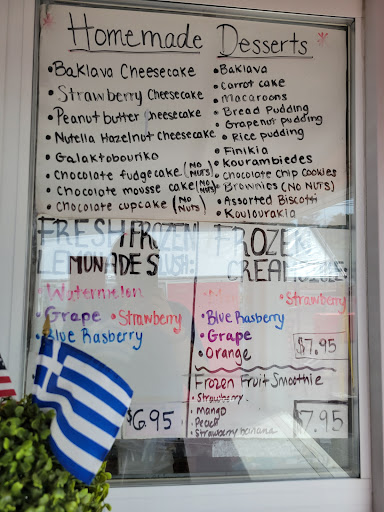 Homemade Desserts
• Baklava Cheesecake
• Strawberry Cheesecake
• Peanut butter cheesecake
• Nutella Hazelnut Cheesecake
• Galaktobouriko
• Chocolate fudgecake (NO NUTS)
• Chocolate mousse cake (NO NUTS)
• Chocolate cupcake (NO NUTS)
• Baklava
• Carrot cake
• Macaroons
• Bread Pudding
• Grapenut pudding
• Rice pudding
• Finikia
• Kourambiedes
• Chocolate Chip Cookies
• Brownies (NO NUTS)
• Assorted Biscotti
• Koulourakia
FRESH FROZEN
LEMONADE SLUSH:
• Watermelon
• Grape • Strawberry
• Blue Rasberry
$6.95
FROZEN
CREAMSICLE:
• Strawberry
• Blue Rasberry
• Grape
• Orange
$7.95
Frozen Fruit Smoothie
• Strawberry
• Mango
• Peach
• Strawberry banana
$7.95